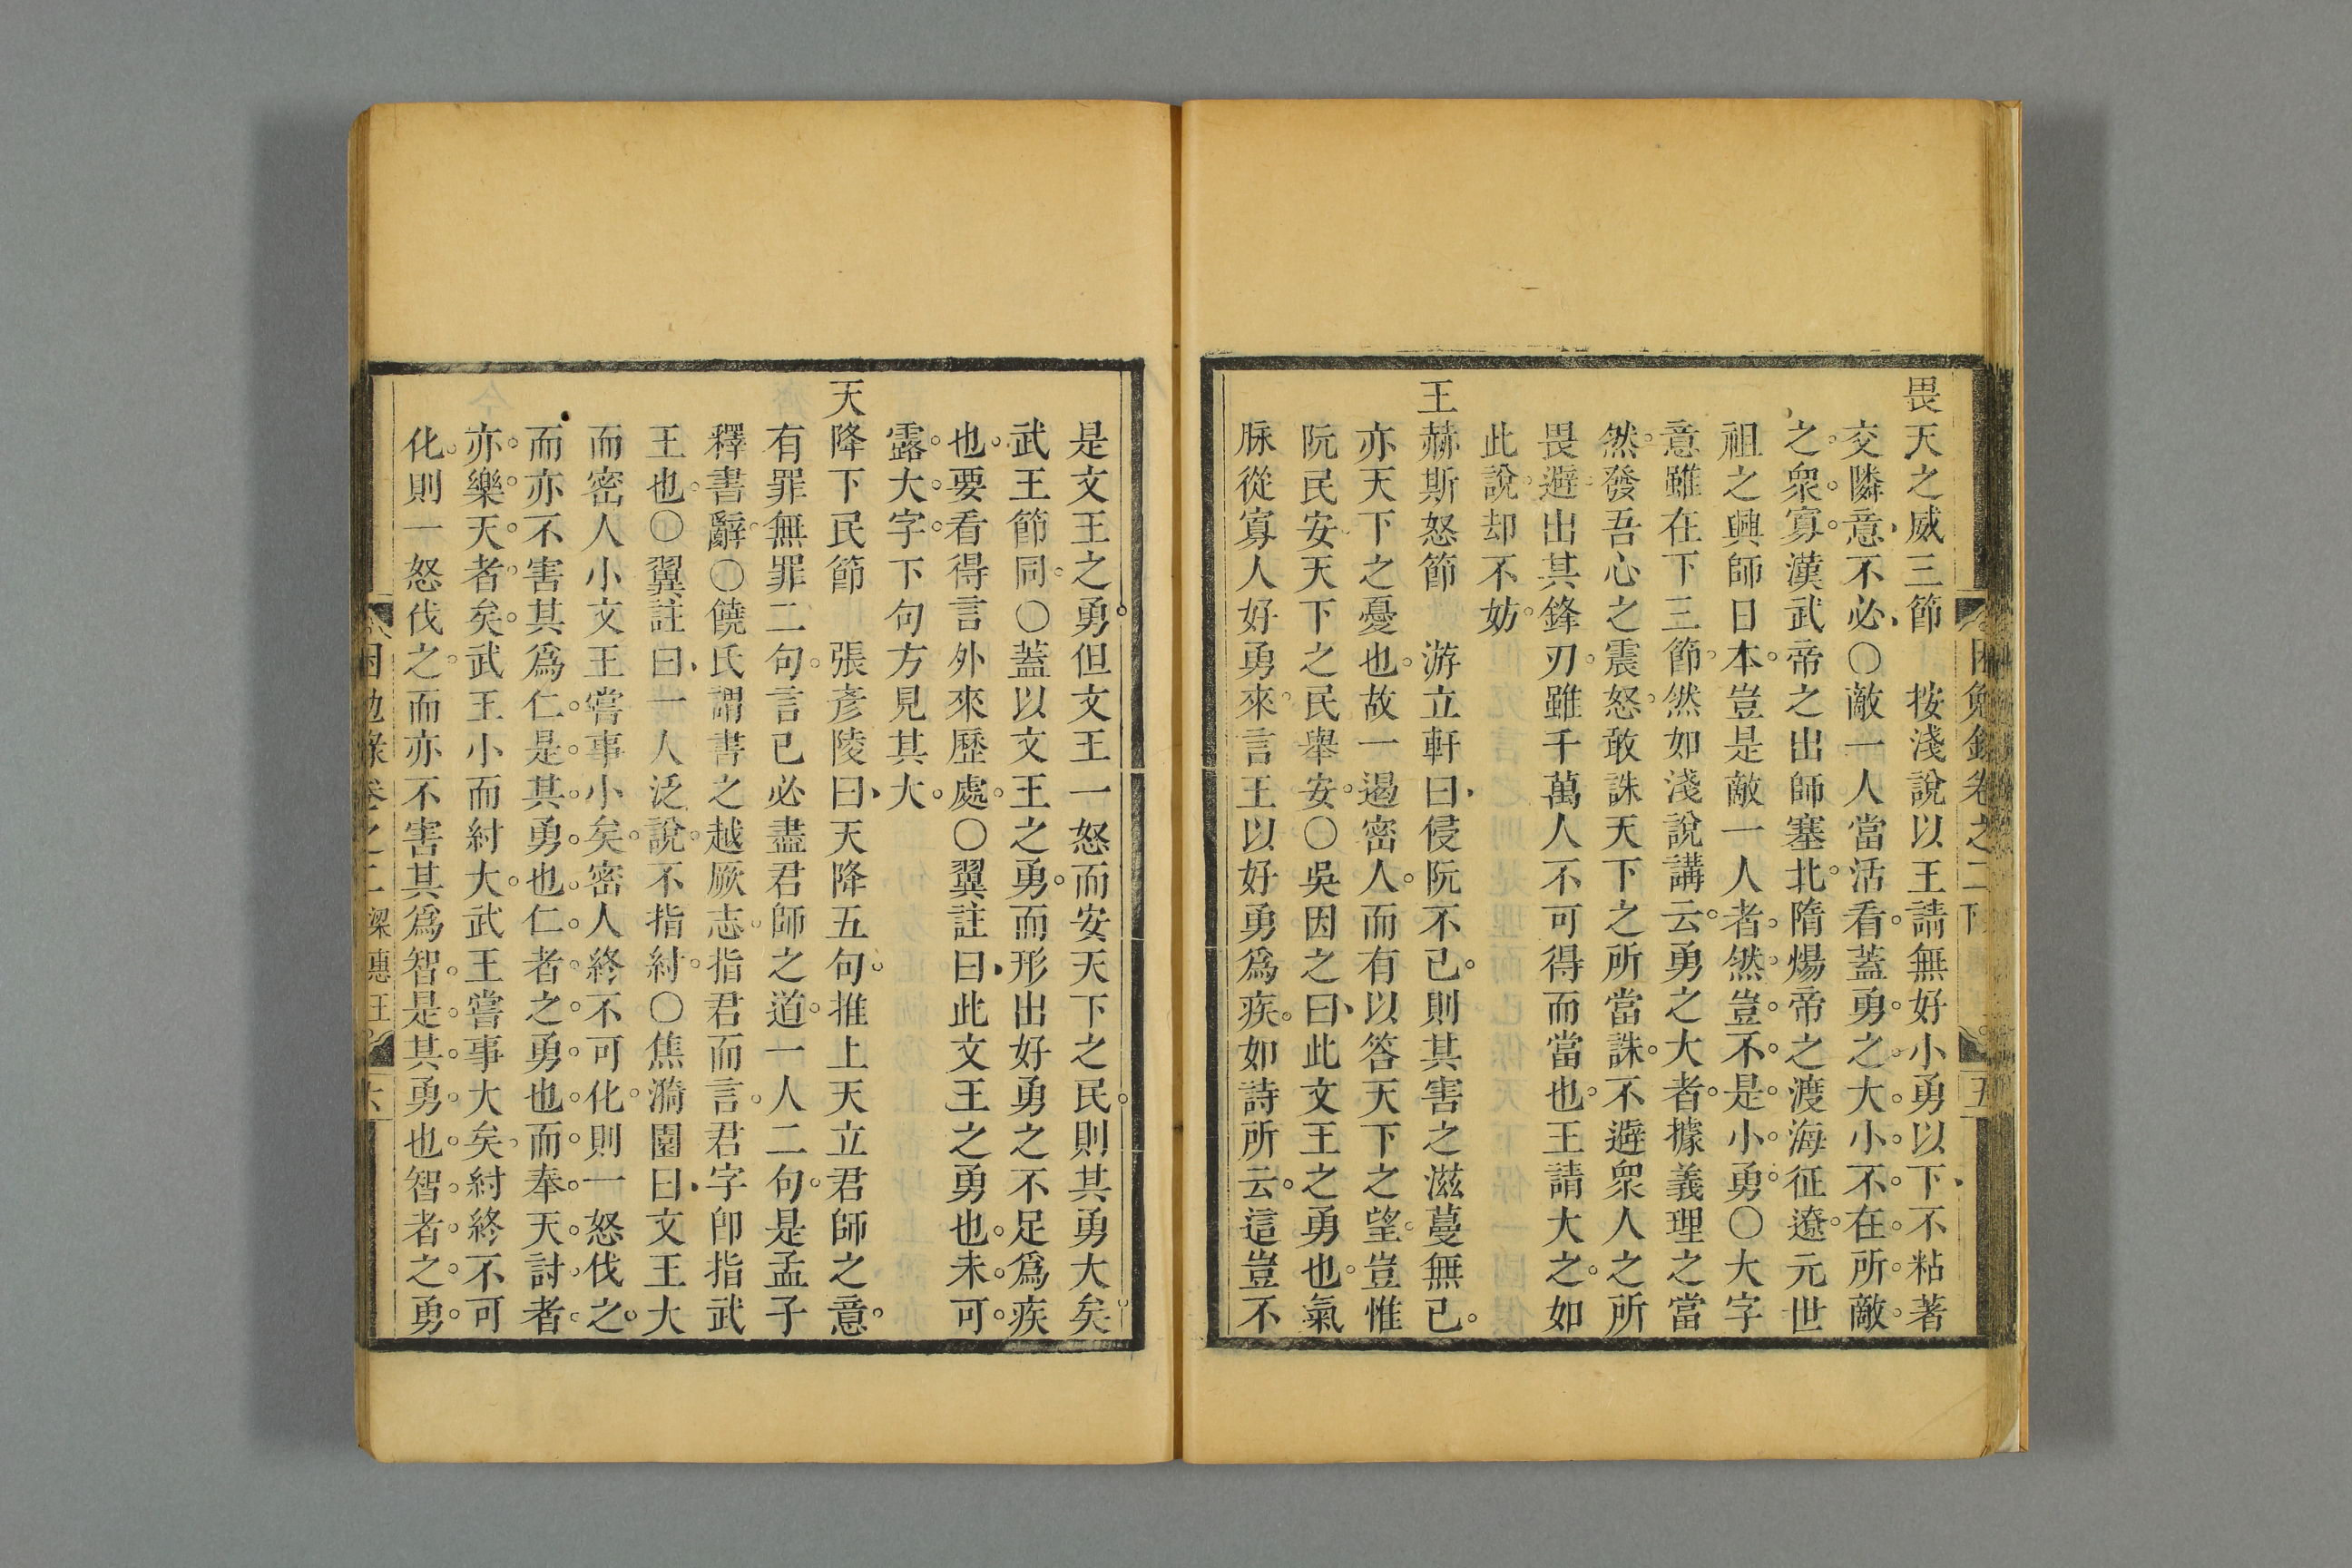 畏天之威三節　按淺說以王請無好小勇以下不粘著
交隣意不必〇敵一人當活看蓋勇之大小不在所敵
之衆寡漢武帝之出師塞北隋煬帝之渡海征遼元世
祖之興師日本豈是敵一人者然豈不是小勇〇大字
意雖在下三節然如淺說講云勇之大者據義理之當
然發吾心之震怒敢誅天下之所當誅不避衆人之所
畏避出其鋒刃雖千萬人不可得而當也王請大之如
此說却不妨
王赫斯怒節　游立軒曰侵阮不已則其害之滋蔓無已
亦天下之憂也故一遏密人而有以答天下之望豈惟
阮民安天下之民舉安〇吳因之曰此文王之勇也氣
脉從寡人好勇來言王以好勇爲疾如詩所云這豈不
是文王之勇但文王一怒而安天下之民則其勇大矣
武王節同〇蓋以文王之勇而形出好勇之不足爲疾
也要看得言外來歷處〇翼註曰此文王之勇也未可
露大字下句方見其大
天降下民節　張彥陵曰天降五句推上天立君師之意
有罪無罪二句言已必盡君師之道一人二句是孟子
釋書辭〇饒氏謂書之越厥志指君而言君字卽指武
王也〇翼註曰一人泛說不指紂〇焦漪園曰文王大
而密人小文王嘗事小矣密人終不可化則一怒伐之
而亦不害其爲仁是其勇也仁者之勇也而奉天討者
亦樂天者矣武王小而紂大武王嘗事大矣紂終不可
化則一怒伐之而亦不害其爲智是其勇也智者之勇
困勉錄卷之二 梁惠王 六